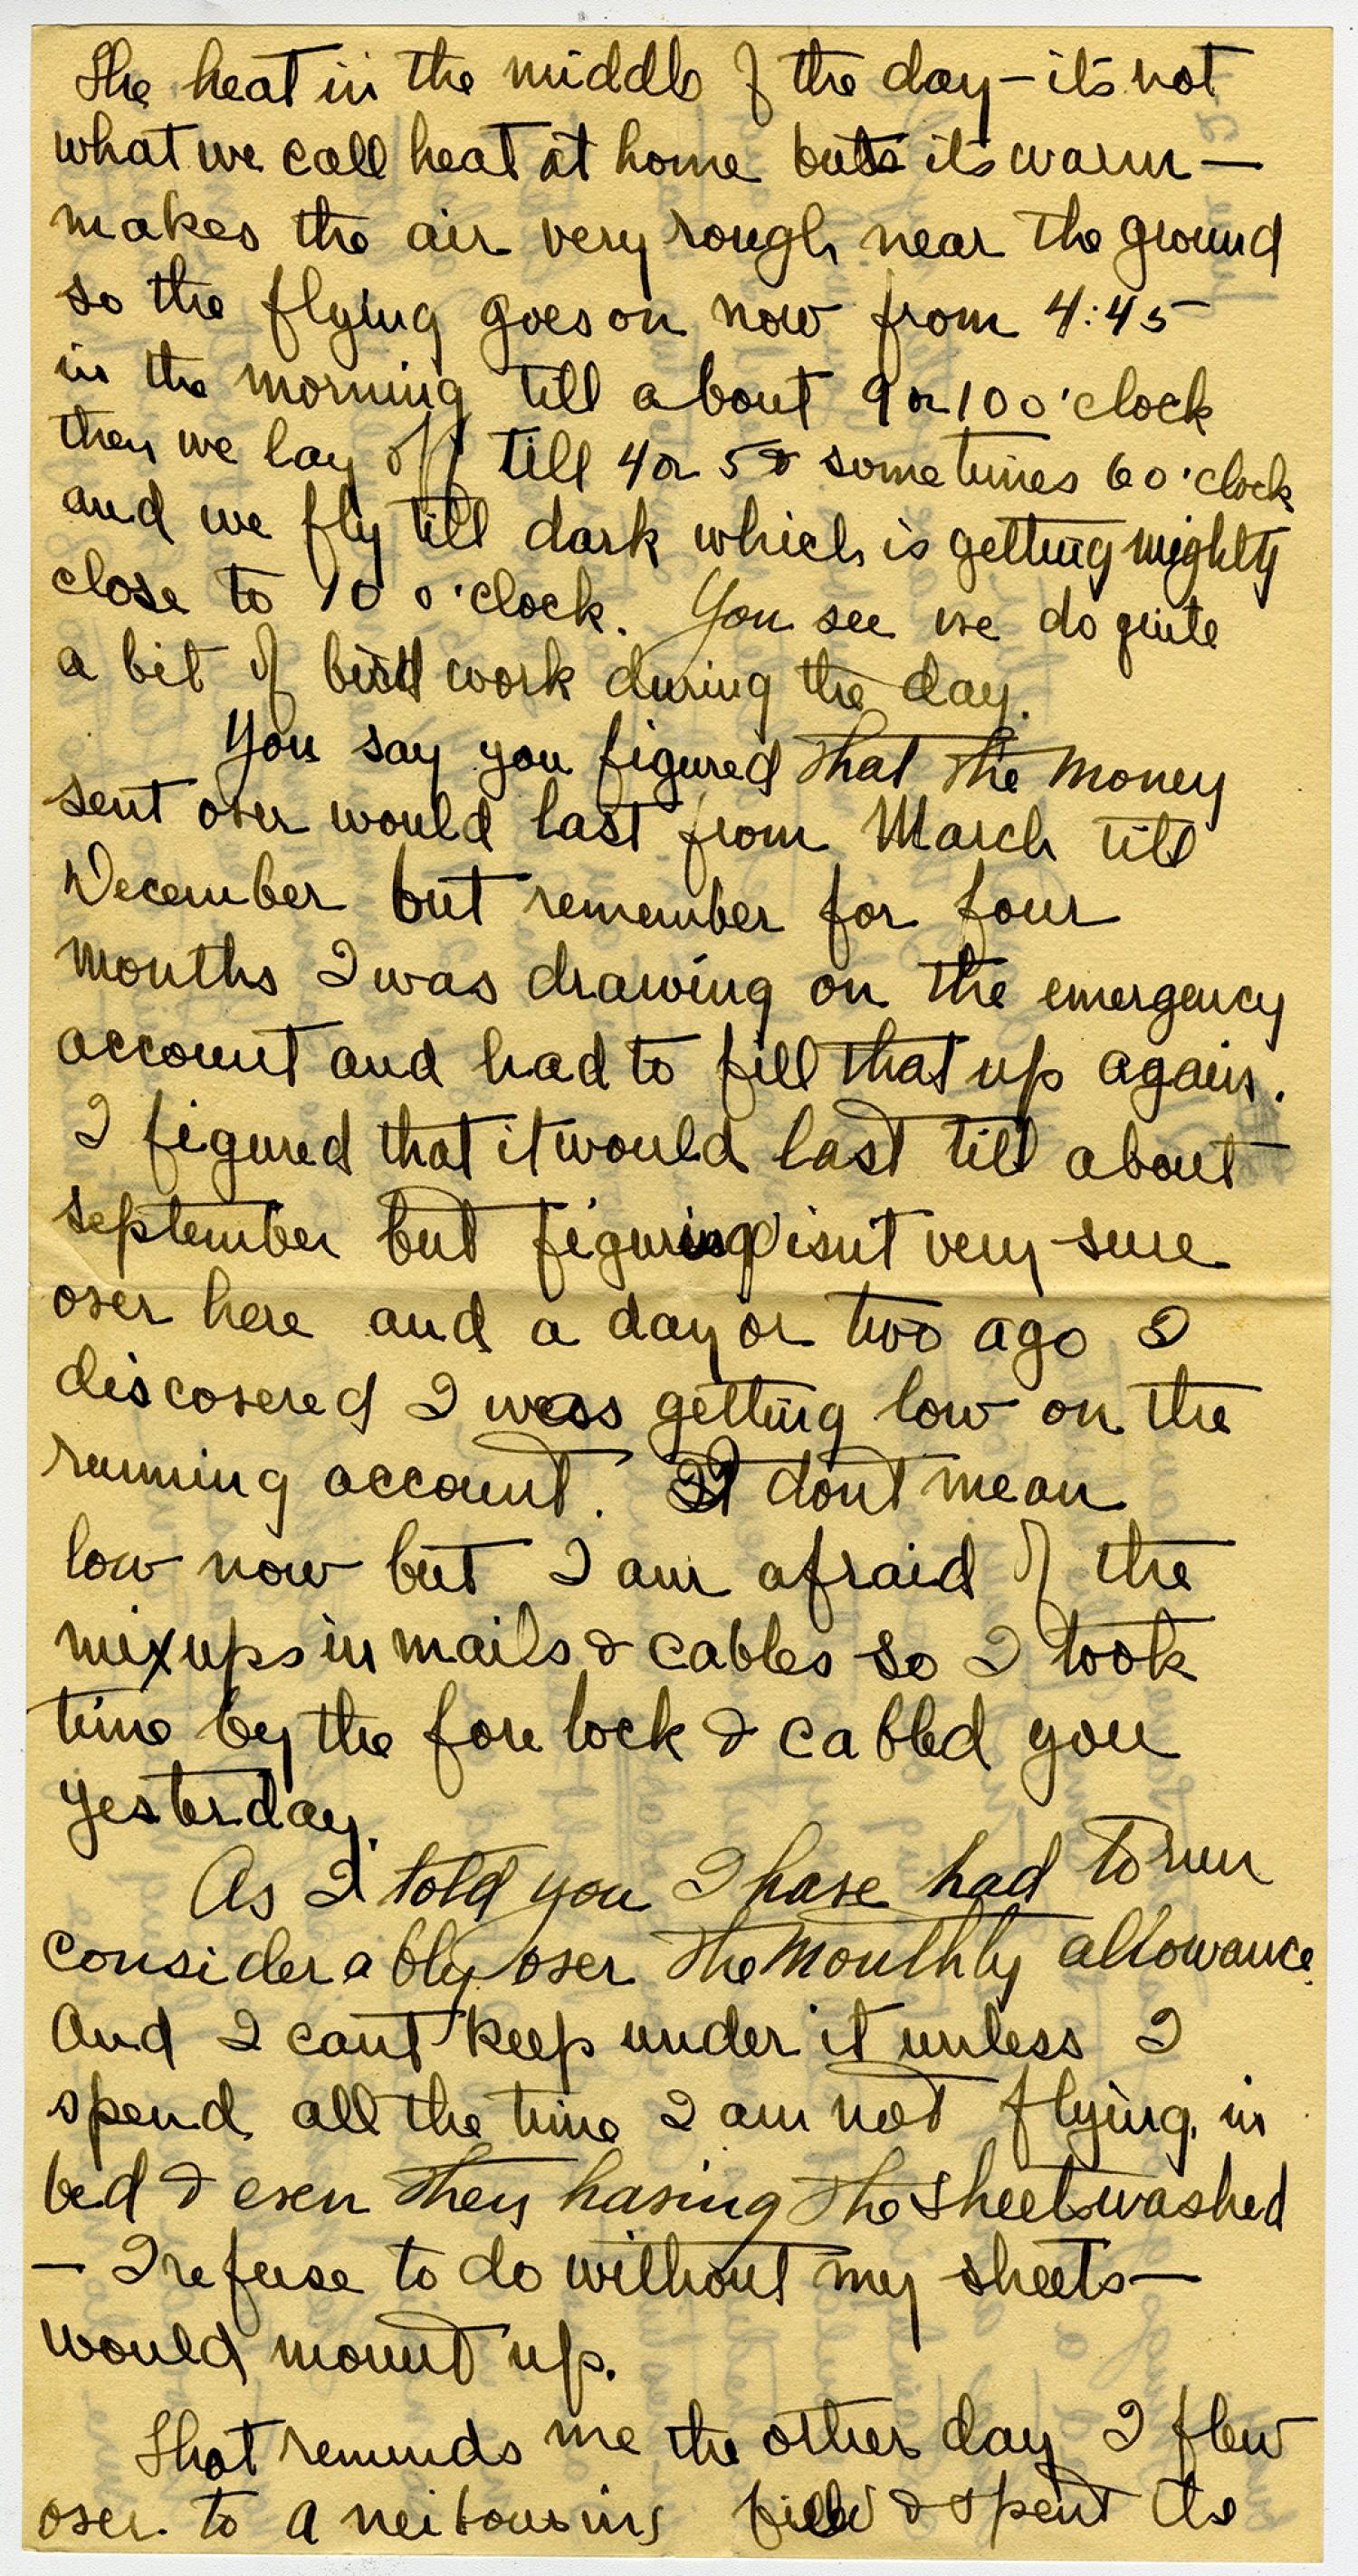 The heat in the middle of the day – its not
what we call heat at home but its warm –
makes the air very rough near the ground
so the flying goes on now from 4:45
in the morning till about 9 or 10 o'clock
then we lay off till 4 or 5 & sometimes 6 o'clock
and we fly till dark which is getting mighty
close to 10 o'clock. You see we do quite
a bit of bird work during the day.
You say you figured that the money
sent over would last from March till
December but remember for four
months I was drawing on the emergency
account and had to fill that up again.
I figured that it would last till about
september but figuring isnt very sure
over here and a day or two ago I
discovered I was getting low on the
running account. I dont mean
low now but I am afraid of the
mixups in mails & cables so I took
time by the fore lock & cabled you
yesterday.
As I told you I have had to run
considerably over the monthly allowance.
And I cant keep under it unless I
spend all the time I am not flying in
bed & even then having the sheets washed
– I refuse to do without my sheets –
would mount up.
That reminds me the other day I flew
over to a neibouring field & spent the